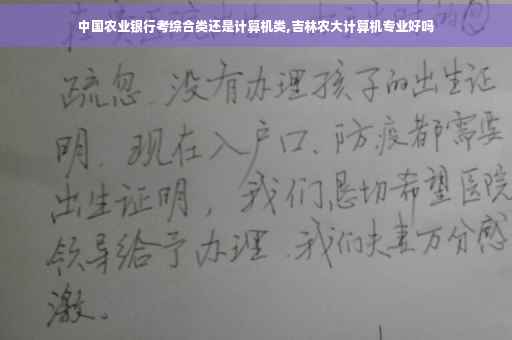 中国农业银行考综合类还是计算机类,吉林农大计算机专业好吗
疏忽、没有办理孩子的出生证
明、现在入户口、防疫都需要
出生证明，我们恳切希望医院
领导给予办理、我们夫妻万分感
激。